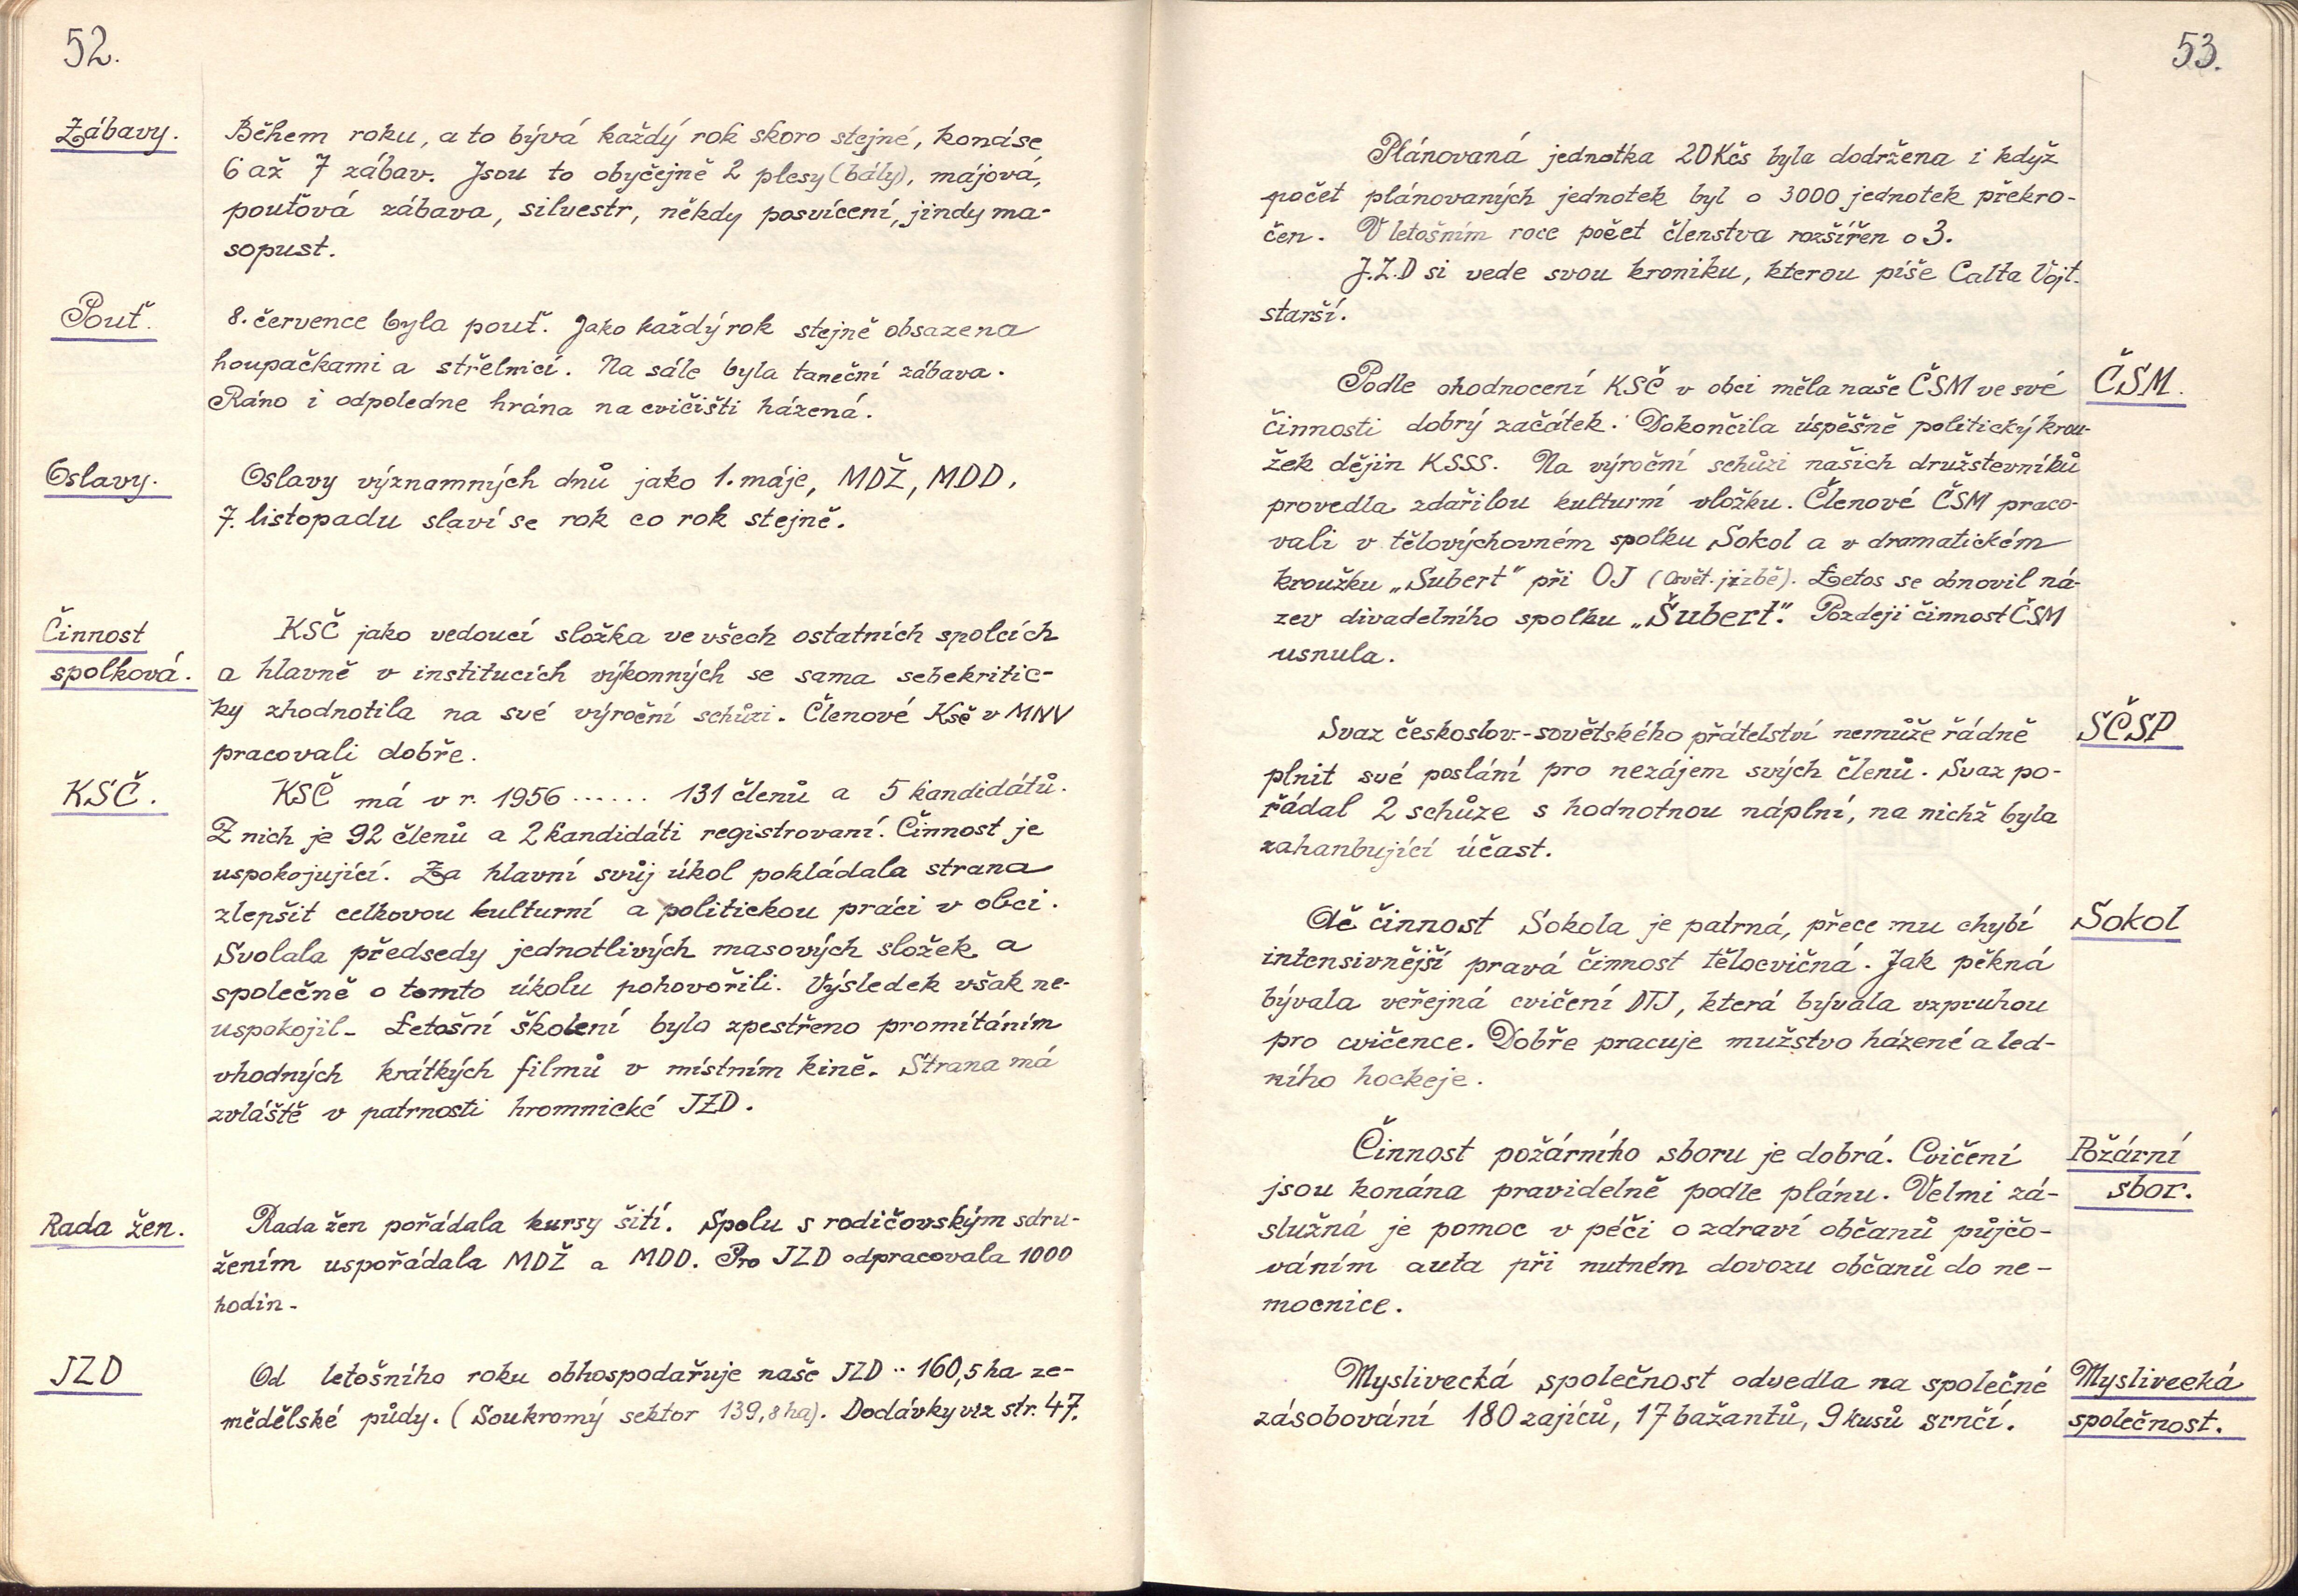 52.
Zábavy.
Během roku, a to bývá každý rok skoro stejné, koná se
6 až 7 zábav. Jsou to obyčejně 2 plesy (bály), májová,
pouťová zábava, silvestr, někdy posvícení, jindy ma-
sopust.
Pouť.
8. července byla pouť. Jako každý rok stejně obsazena
houpačkami a střelnicí. Na sále byla taneční zábava.
Ráno i odpoledne hrána na cvičišti házená.
Oslavy.
Oslavy významných dnů jako 1. máje, MDŽ, MDD,
7. listopadu slaví se rok co rok stejně.
Činnost
spolková.
KSČ jako vedoucí složka ve všech ostatních spolcích
a hlavně v institucích výkonných se sama sebekritic-
ky zhodnotila na své výroční schůzi. Členové Ksč v MNV
pracovali dobře.
KSČ.
KSČ má v r. 1956 ...... 131 členů a 5 kandidátů.
Z nich je 92 členů a 2 kandidáti registrovaní. Činnost je
uspokojující. Za hlavní svůj úkol pokládala strana
zlepšit celkovou kulturní a politickou práci v obci.
Svolala předsedy jednotlivých masových složek a
společně o tomto úkolu pohovořili. Výsledek však ne-
uspokojil. Letošní školení bylo zpestřeno promítáním
vhodných krátkých filmů v místním kině. Strana má
zvláště v patrnosti hromnické JZD.
Rada žen.
Rada žen pořádala kursy šití. Spolu s rodičovským sdru-
žením uspořádala MDŽ a MDD. Pro JZD odpracovala 1000
hodin.
JZD
Od letošního roku obhospodařuje naše JZD .. 160,5 ha ze-
mědělské půdy. (Soukromý sektor 139,8 ha). Dodávky viz str. 47.
53.
Plánovaná jednotka 20 Kčs byla dodržena i když
počet plánovaných jednotek byl o 3000 jednotek překro-
čen. V letošním roce počet členstva rozšířen o 3.
J.Z.D si vede svou kroniku, kterou píše Calta Vojt.
starší.
ČSM.
Podle ohodnocení KSČ v obci měla naše ČSM ve své
činnosti dobrý začátek. Dokončila úspěšně politický krou-
žek dějin KSSS. Na výroční schůzi našich družstevníků
provedla zdařilou kulturní vložku. Členové ČSM praco-
vali v tělovýchovném spolku Sokol a v dramatickém
kroužku „Subert" při OJ (Osvět. jizbě). Letos se obnovil ná-
zev divadelního spolku „Šubert". Pozdeji činnost ČSM
usnula.
SČSP
Svaz českoslov.-sovětského přátelství nemůže řádně
plnit své poslání pro nezájem svých členů. Svaz po-
řádal 2 schůze s hodnotnou náplní, na nichž byla
zahanbující účast.
Sokol
Ač činnost Sokola je patrná, přece mu chybí
intensivnější pravá činnost tělocvičná. Jak pěkná
bývala veřejná cvičení DTJ, která bývala vzpruhou
pro cvičence. Dobře pracuje mužstvo házené a led-
ního hockeje.
Požární
sbor.
Činnost požárního sboru je dobrá. Cvičení
jsou konána pravidelně podle plánu. Velmi zá-
služná je pomoc v péči o zdraví občanů půjčo-
váním auta při nutném dovozu občanů do ne-
mocnice.
Myslivecká
společnost.
Myslivecká společnost odvedla na společné
zásobování 180 zajíců, 17 bažantů, 9 kusů srnčí.